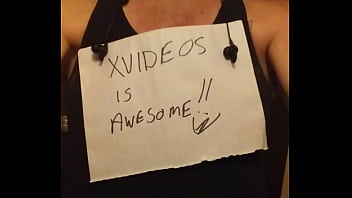 XVIDEOS
IS
AWESOME!!